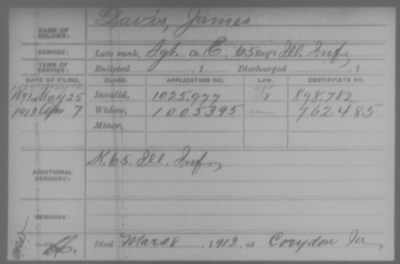 NAME OF SOLDIER: Davis, James
SERVICE: Late rank, Sgt. Co. C, 65 Reg't Ill. Inf.
TERM OF SERVICE: Enlisted , 1 Discharged , 1
DATE OF FILING. CLASS. APPLICATION NO. LAW. CERTIFICATE NO.
1891 May 25 Invalid, 1025.977 898.782
1913 Apr 7 Widow, 1005395 762485
Minor,
ADDITIONAL SERVICES: K. 65. Ill. Inf.
REMARKS:
Died Mar 28, 1913, at Corydon Ia